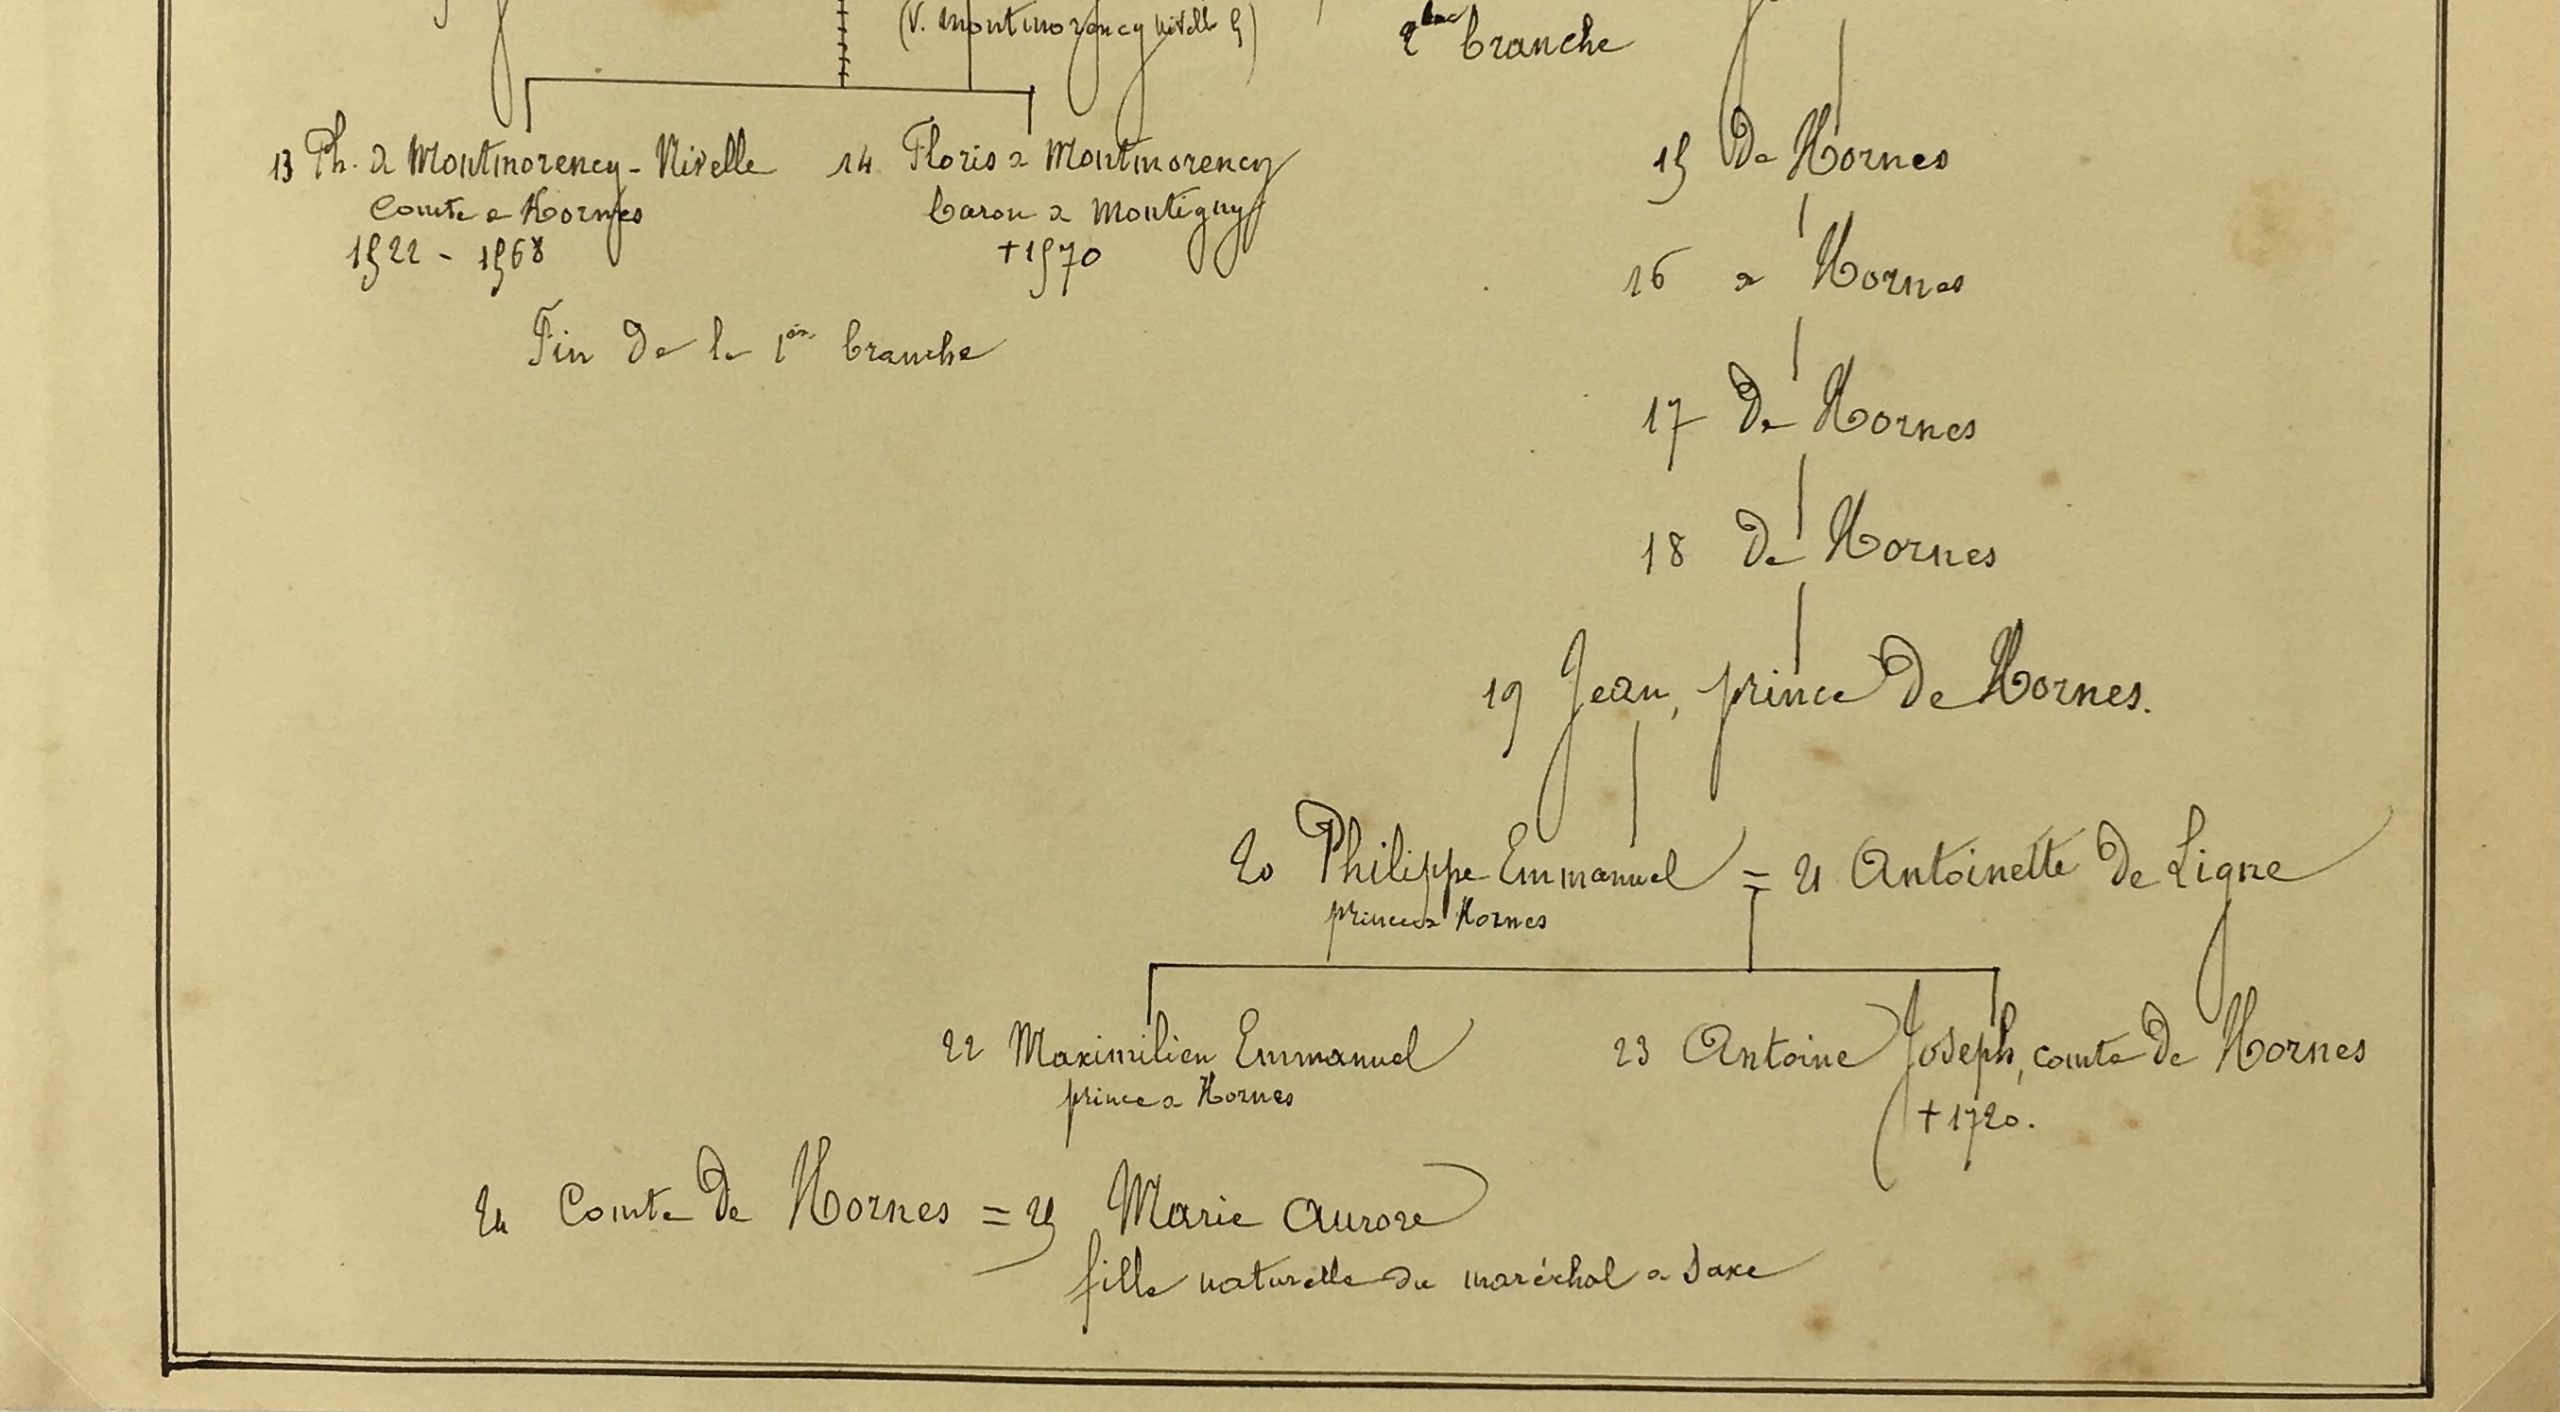 (V. Montmorency Nivelle 5)
2ème branche
13 Ph. de Montmorency-Nivelle
Comte de Hornes
1522 - 1568
14 Floris de Montmorency
baron de Montigny
+1570
Fin de la 1ère branche
15 De Hornes
16 de Hornes
17 De Hornes
18 De Hornes
19 Jean, prince De Hornes.
20 Philippe Emmanuel = 21 Antoinette De Ligne
prince de Hornes
22 Maximilien Emmanuel
prince de Hornes
23 Antoine Joseph, comte De Hornes
+ 1720.
24 Comte De Hornes = 25 Marie Aurore
fille naturelle du maréchal de Saxe